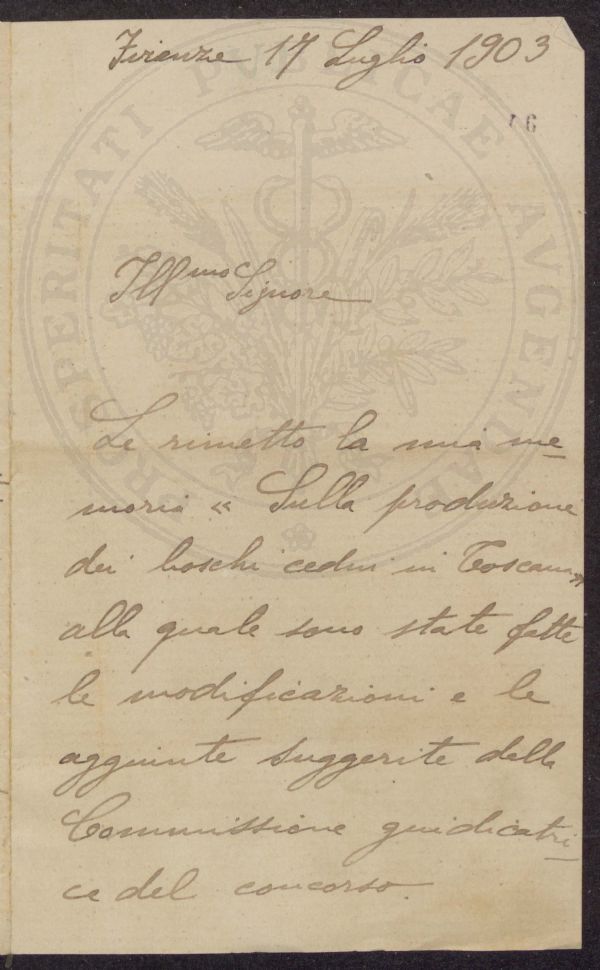 Firenze 17 Luglio 1903
16
PROSPERITATI PVBLICAE AVGENDAE
Ill.mo Signore
Le rimetto la mia me-
moria « Sulla produzione
dei boschi cedui in Toscana»
alla quale sono state fatte
le modificazioni e le
aggiunte suggerite dalla
Commissione giudicatri-
ce del concorso.